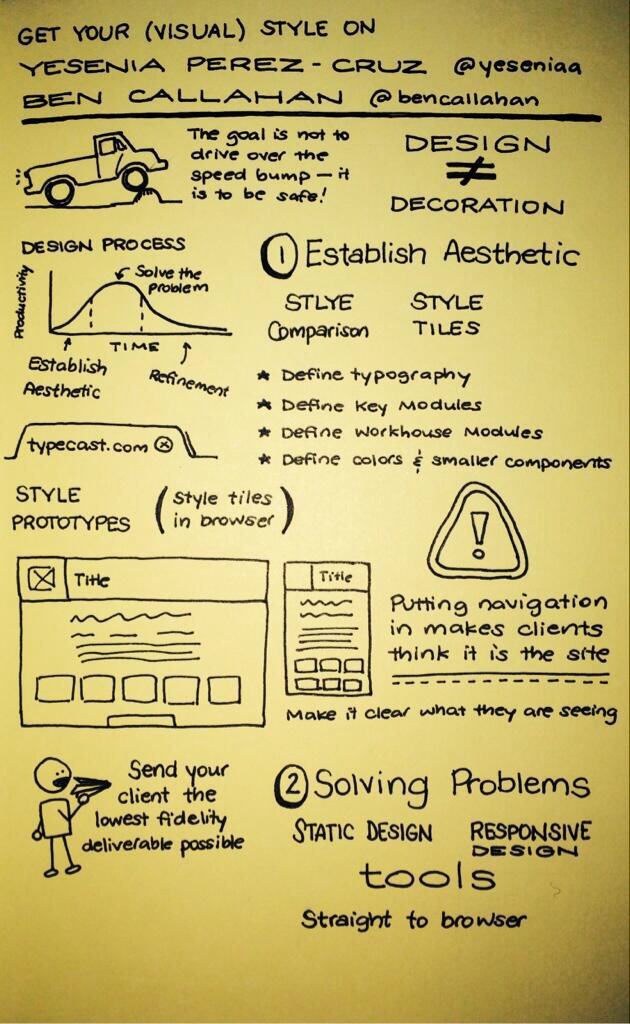 GET YOUR (VISUAL) STYLE ON
YESENIA PEREZ-CRUZ @yeseniaa
BEN CALLAHAN @bencallahan
The goal is not to
drive over the
speed bump — it
is to be safe!
DESIGN
≠
DECORATION
DESIGN PROCESS
Productivity
Solve the
problem
TIME
Establish
Aesthetic
Refinement
① Establish Aesthetic
STLYE
Comparison
STYLE
TILES
★ Define typography
★ Define Key Modules
★ Define Workhouse Modules
★ Define colors & smaller components
typecast.com ⓧ
STYLE
PROTOTYPES
(Style tiles
in browser)
Title
Title
!
Putting navigation
in makes clients
think it is the site
Make it clear what they are seeing
Send your
client the
lowest fidelity
deliverable possible
② Solving Problems
STATIC DESIGN
RESPONSIVE
DESIGN
tools
Straight to browser